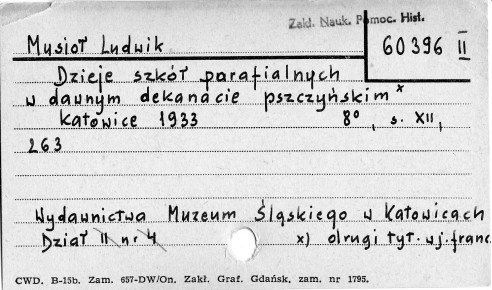 Zakł. Nauk. Pomoc. Hist.
Musioł Ludwik
60396 II
Dzieje szkół parafialnych
w dawnym dekanacie pszczyńskim x
Katowice 1933 8°, s. XII,
263
Wydawnictwa Muzeum Śląskiego w Katowicach
Dział II nr 4 x) drugi tyt. w j. franc.
CWD. B-15b. Zam. 657-DW/On. Zakł. Graf. Gdańsk, zam. nr 1795.